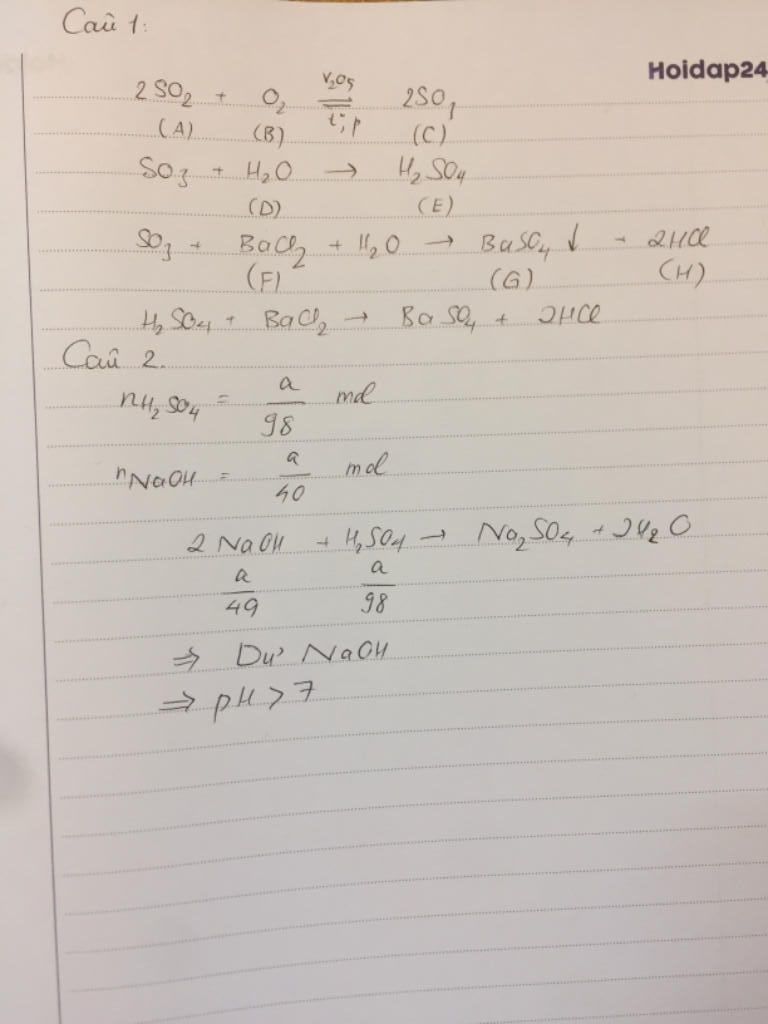 Caû 1:
Hoidap24
2SO₂ + O₂ ⇌ 2SO₃
V₂O₅
t°, p
(A) (B) (C)
SO₃ + H₂O → H₂SO₄
(D) (E)
SO₃ + BaCl₂ + H₂O → BaSO₄ ↓ + 2HCl
(F) (G) (H)
H₂SO₄ + BaCl₂ → BaSO₄ + 2HCl
Caû 2.
nH₂SO₄ = a/98 mol
nNaOH = a/40 mol
2 NaOH + H₂SO₄ → Na₂SO₄ + 2H₂O
a/49 a/98
⇒ Dư NaOH
⇒ pH > 7